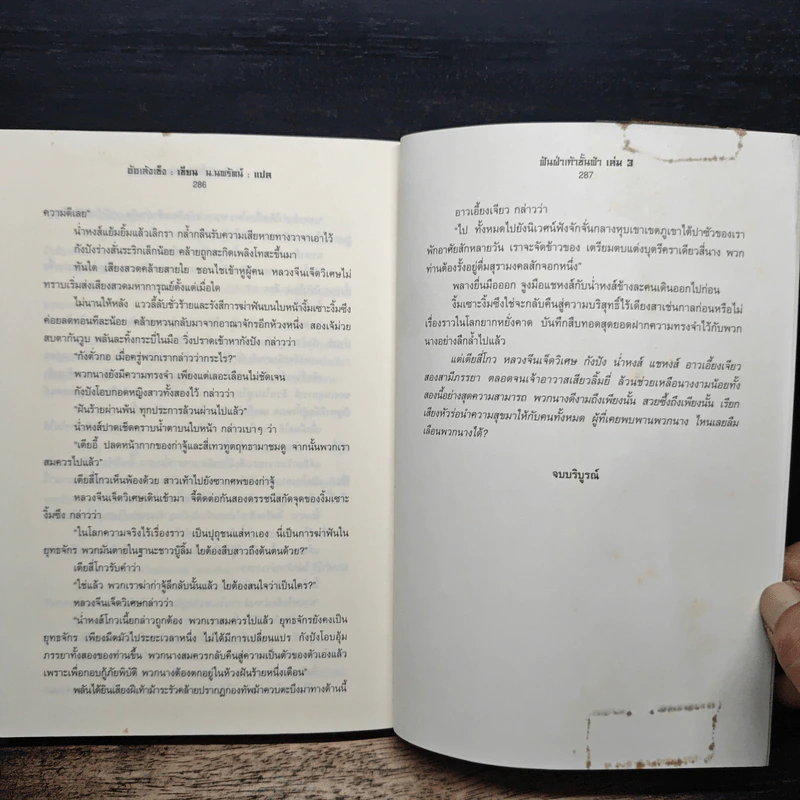 อ้อเล้งเซ็ง : เขียน น.นพรัตน์ : แปล
286
ความดีเลย"
น่ำหงส์แย้มยิ้มแล้วเลิกรา กล้ำกลืนรับความเสียหายทางวาจาเอาไว้
กังปังร่างสั่นระริกเล็กน้อย คล้ายถูกสะกิดเพลิงโทสะขึ้นมา
ทันใด เสียงสวดคล้ายสายใย ชอนไชเข้าหูผู้คน หลวงจีนเจ็ดวิเศษไม่
ทราบเริ่มส่งเสียงสวดมหาการุณย์ตั้งแต่เมื่อใด
ไม่นานให้หลัง แววลี้ลับชั่วร้ายและรังสีการฆ่าฟันบนใบหน้างิ้มเซาะงิ้มซึง
ค่อยลดทอนทีละน้อย คล้ายหวนกลับมาจากอาณาจักรอีกห้วงหนึ่ง สองเจ้ม่วย
สบตากันวูบ พลันละทิ้งกระบี่ในมือ วิ่งปราดเข้าหากังปัง กล่าวว่า
"กังตั่วกอ เมื่อครู่พวกเรากล่าวว่ากระไร?"
พวกนางยังมีความทรงจำ เพียงแต่เลอะเลือนไม่ชัดเจน
กังปังโอบกอดหญิงสาวทั้งสองไว้ กล่าวว่า
"ฝันร้ายผ่านพ้น ทุกประการล้วนผ่านไปแล้ว"
น่ำหงส์ปาดเช็ดคราบน้ำตาบนใบหน้า กล่าวเบาๆ ว่า
"เตียอี้ ปลดหน้ากากของก่าจู้และสี่เทวทูตฤทธามาชมดู จากนั้นพวกเรา
สมควรไปแล้ว"
เตียสี่โกวเห็นพ้องด้วย สาวเท้าไปยังซากศพของก่าจู้
หลวงจีนเจ็ดวิเศษเดินเข้ามา จี้ติดต่อกันสองดรรชนีสกัดจุดของงิ้มเซาะ
งิ้มซึง กล่าวว่า
"ในโลกความจริงไร้เรื่องราว เป็นปุถุชนแส่หาเอง นี่เป็นการฆ่าฟันใน
ยุทธจักร พวกมันตายในฐานะชาวบู๊ลิ้ม ไยต้องสืบสาวถึงต้นตนด้วย?"
เตียสี่โกวรับคำว่า
"ใช่แล้ว พวกเราฆ่าก่าจู้ลึกลับนั้นแล้ว ไยต้องสนใจว่าเป็นใคร?"
หลวงจีนเจ็ดวิเศษกล่าวว่า
"น่ำหงส์โกวเนี้ยกล่าวถูกต้อง พวกเราสมควรไปแล้ว ยุทธจักรยังคงเป็น
ยุทธจักร เพียงมืดมัวไประยะเวลาหนึ่ง ไม่ได้มีการเปลี่ยนแปร กังปังโอบอุ้ม
ภรรยาทั้งสองของท่านขึ้น พวกนางสมควรกลับคืนสู่ความเป็นตัวของตัวเองแล้ว
เพราะเพื่อกอบกู้ภัยพิบัติ พวกนางต้องตกอยู่ในห้วงฝันร้ายหนึ่งเดือน"
พลันได้ยินเสียงฝีเท้าม้าระรัวคล้ายปรากฏกองทัพม้าควบตะบึงมาทางด้านนี้
ฟันฝ่าเท้าชั้นฟ้า เล่ม 3
287
อาวเอี้ยงเจียว กล่าวว่า
"ไป ทั้งหมดไปยังนิเวศน์ฟังจักจั่นกลางหุบเขาเขตภูเขาไต้ปาซัวของเรา
พักอาศัยสักหลายวัน เราจะจัดข้าวของ เตรียมตบแต่งบุตรีคราเดียวสี่นาง พวก
ท่านต้องรั้งอยู่ดื่มสุรามงคลสักจอกหนึ่ง"
พลางยื่นมือออก จูงมือแชหงส์กับน่ำหงส์ข้างละคนเดินออกไปก่อน
งิ้มเซาะงิ้มซึงใช่จะกลับคืนสู่ความบริสุทธิ์ไร้เดียงสาเช่นกาลก่อนหรือไม่
เรื่องราวในโลกยากหยั่งคาด บันทึกสืบทอดสุดยอดฝากความทรงจำไว้กับพวก
นางอย่างลึกล้ำไปแล้ว
แต่เตียสี่โกว หลวงจีนเจ็ดวิเศษ กังปัง น่ำหงส์ แชหงส์ อาวเอี้ยงเจียว
สองสามีภรรยา ตลอดจนเจ้าอาวาสเสียวลิ้มยี่ ล้วนช่วยเหลือนางงามน้อยทั้ง
สองนี้อย่างสุดความสามารถ พวกนางดีงามถึงเพียงนั้น สวยซึ้งถึงเพียงนั้น เรียก
เสียงหัวร่อนำความสุขมาให้กับคนทั้งหมด ผู้ที่เคยพบพานพวกนาง ไหนเลยลืม
เลือนพวกนางได้?
จบบริบูรณ์